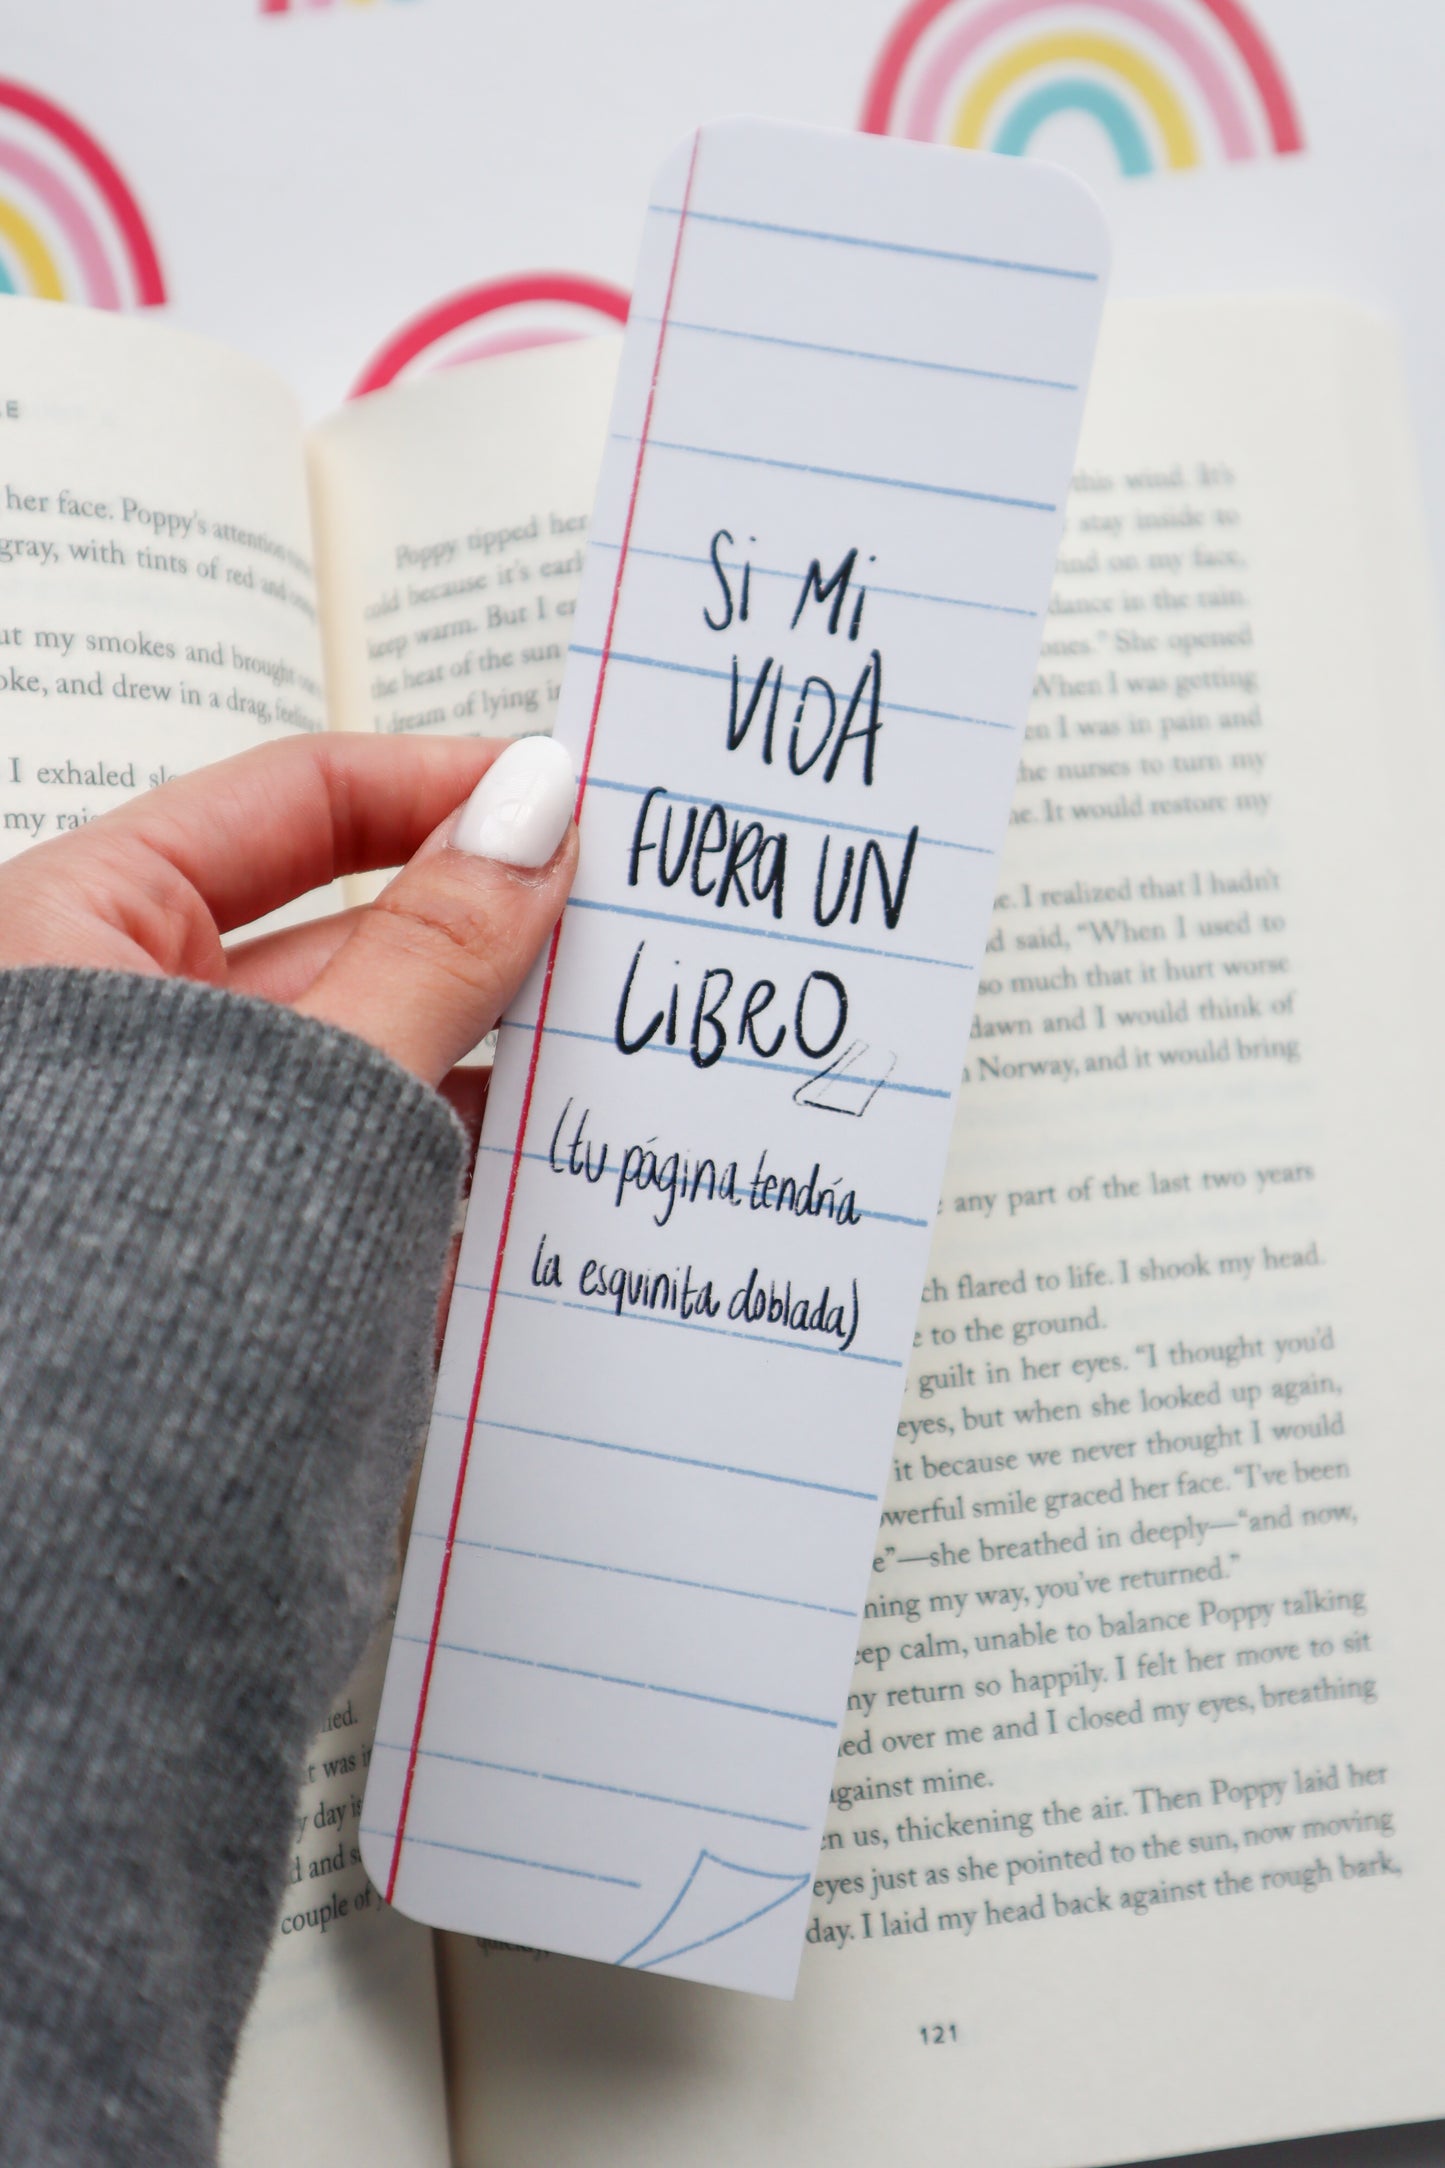 Si Mi
VIDA
FUERA UN
LIBRO
(tu página tendría
la esquinita doblada)
her face. Poppy's attention
gray, with tints of red and
my smokes and brought
and drew in a drag, feeling
I exhaled
my
Poppy tipped her
cold because it's
keep warm. But I
the heat of the sun
I dream of lying
this wind. It's
stay inside to
on my face,
dance in the rain.
She opened
When I was getting
I was in pain and
the nurses to turn my
It would restore my
I realized that I hadn't
said, "When I used to
so much that it hurt worse
dawn and I would think of
Norway, and it would bring
any part of the last two years
flared to life. I shook my head.
to the ground.
guilt in her eyes. "I thought you'd
eyes, but when she looked up again,
it because we never thought I would
smile graced her face. "I've been
—she breathed in deeply—"and now,
my way, you've returned."
calm, unable to balance Poppy talking
my return so happily. I felt her move to sit
over me and I closed my eyes, breathing
against mine.
us, thickening the air. Then Poppy laid her
eyes just as she pointed to the sun, now moving
day. I laid my head back against the rough bark,
was
day
and
couple of
121